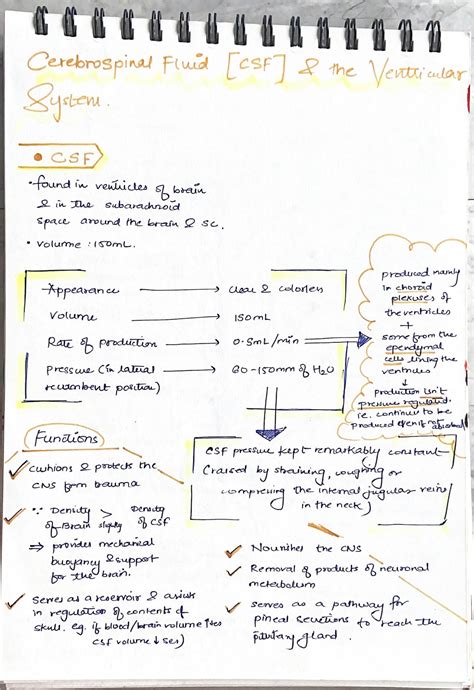 Cerebrospinal Fluid [CSF] & the Ventricular
System.
• CSF
• found in ventricles of brain
& in the subarachnoid
space around the brain & sc.
• volume : 150mL.
Appearance → clear & colorless
Volume → 150mL
Rate of production → 0.5mL/min
Pressure (in lateral → 60-150mm of H₂O
recumbent position)
produced mainly
in choroid
plexuses of
the ventricles
+
some from the
ependymal
cells lining the
ventricles
↓
production isn't
pressure regulated.
i.e. continue to be
produced even if not absorbed
CSF pressure kept remarkably constant
(raised by straining, coughing or
compressing the internal jugular veins
in the neck)
Functions
✓ cushions & protects the
CNS from trauma
✓ ∵ Density > Density
of Brain slightly of CSF
⇒ provides mechanical
buoyancy & support
for the brain.
✓ serves as a reservoir & assists
in regulation of contents of
skull. eg. if blood/brain volume ↑ses
CSF volume ↓ses)
✓ Nourishes the CNS
✓ Removal of products of neuronal
metabolism
✓ serves as a pathway for
pineal secretions to reach the
pituitary gland.